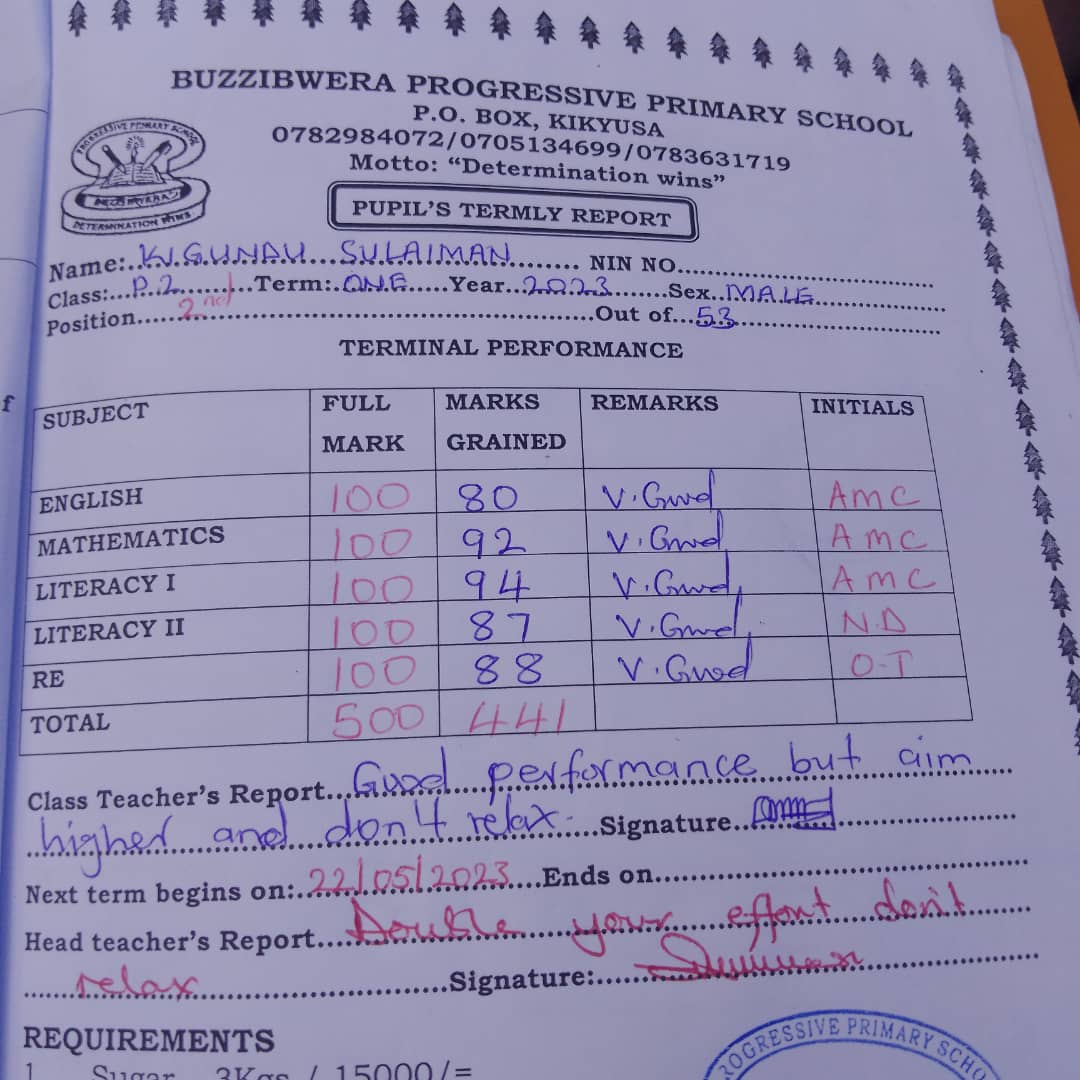 BUZZIBWERA PROGRESSIVE PRIMARY SCHOOL
P.O. BOX, KIKYUSA
0782984072/0705134699/0783631719
Motto: “Determination wins”
PROGRESSIVE PRIMARY SCHOOL
DETERMINATION WINS
PUPIL’S TERMLY REPORT
Name:..KIGUNDU...SULAIMAN......... NIN NO...............................
Class:...P.2.......Term:.ONE.....Year...2023.......Sex..MALE.............
Position.....2nd.......................................Out of...53.......................
TERMINAL PERFORMANCE
f
SUBJECT FULL MARK MARKS GRAINED REMARKS INITIALS
ENGLISH 100 80 V.Good AMC
MATHEMATICS 100 92 V.Good AMC
LITERACY I 100 94 V.Good AMC
LITERACY II 100 87 V.Good N.D
RE 100 88 V.Good O-T
TOTAL 500 441
Class Teacher’s Report...Good performance but aim
higher and don't relax. Signature...
Next term begins on:.22/05/2023...Ends on.......................................
Head teacher’s Report....Double your effort don't
relax Signature:.....
REQUIREMENTS
1. Sugar 3Kgs / 15000/=
ROGRESSIVE PRIMARY SCHO